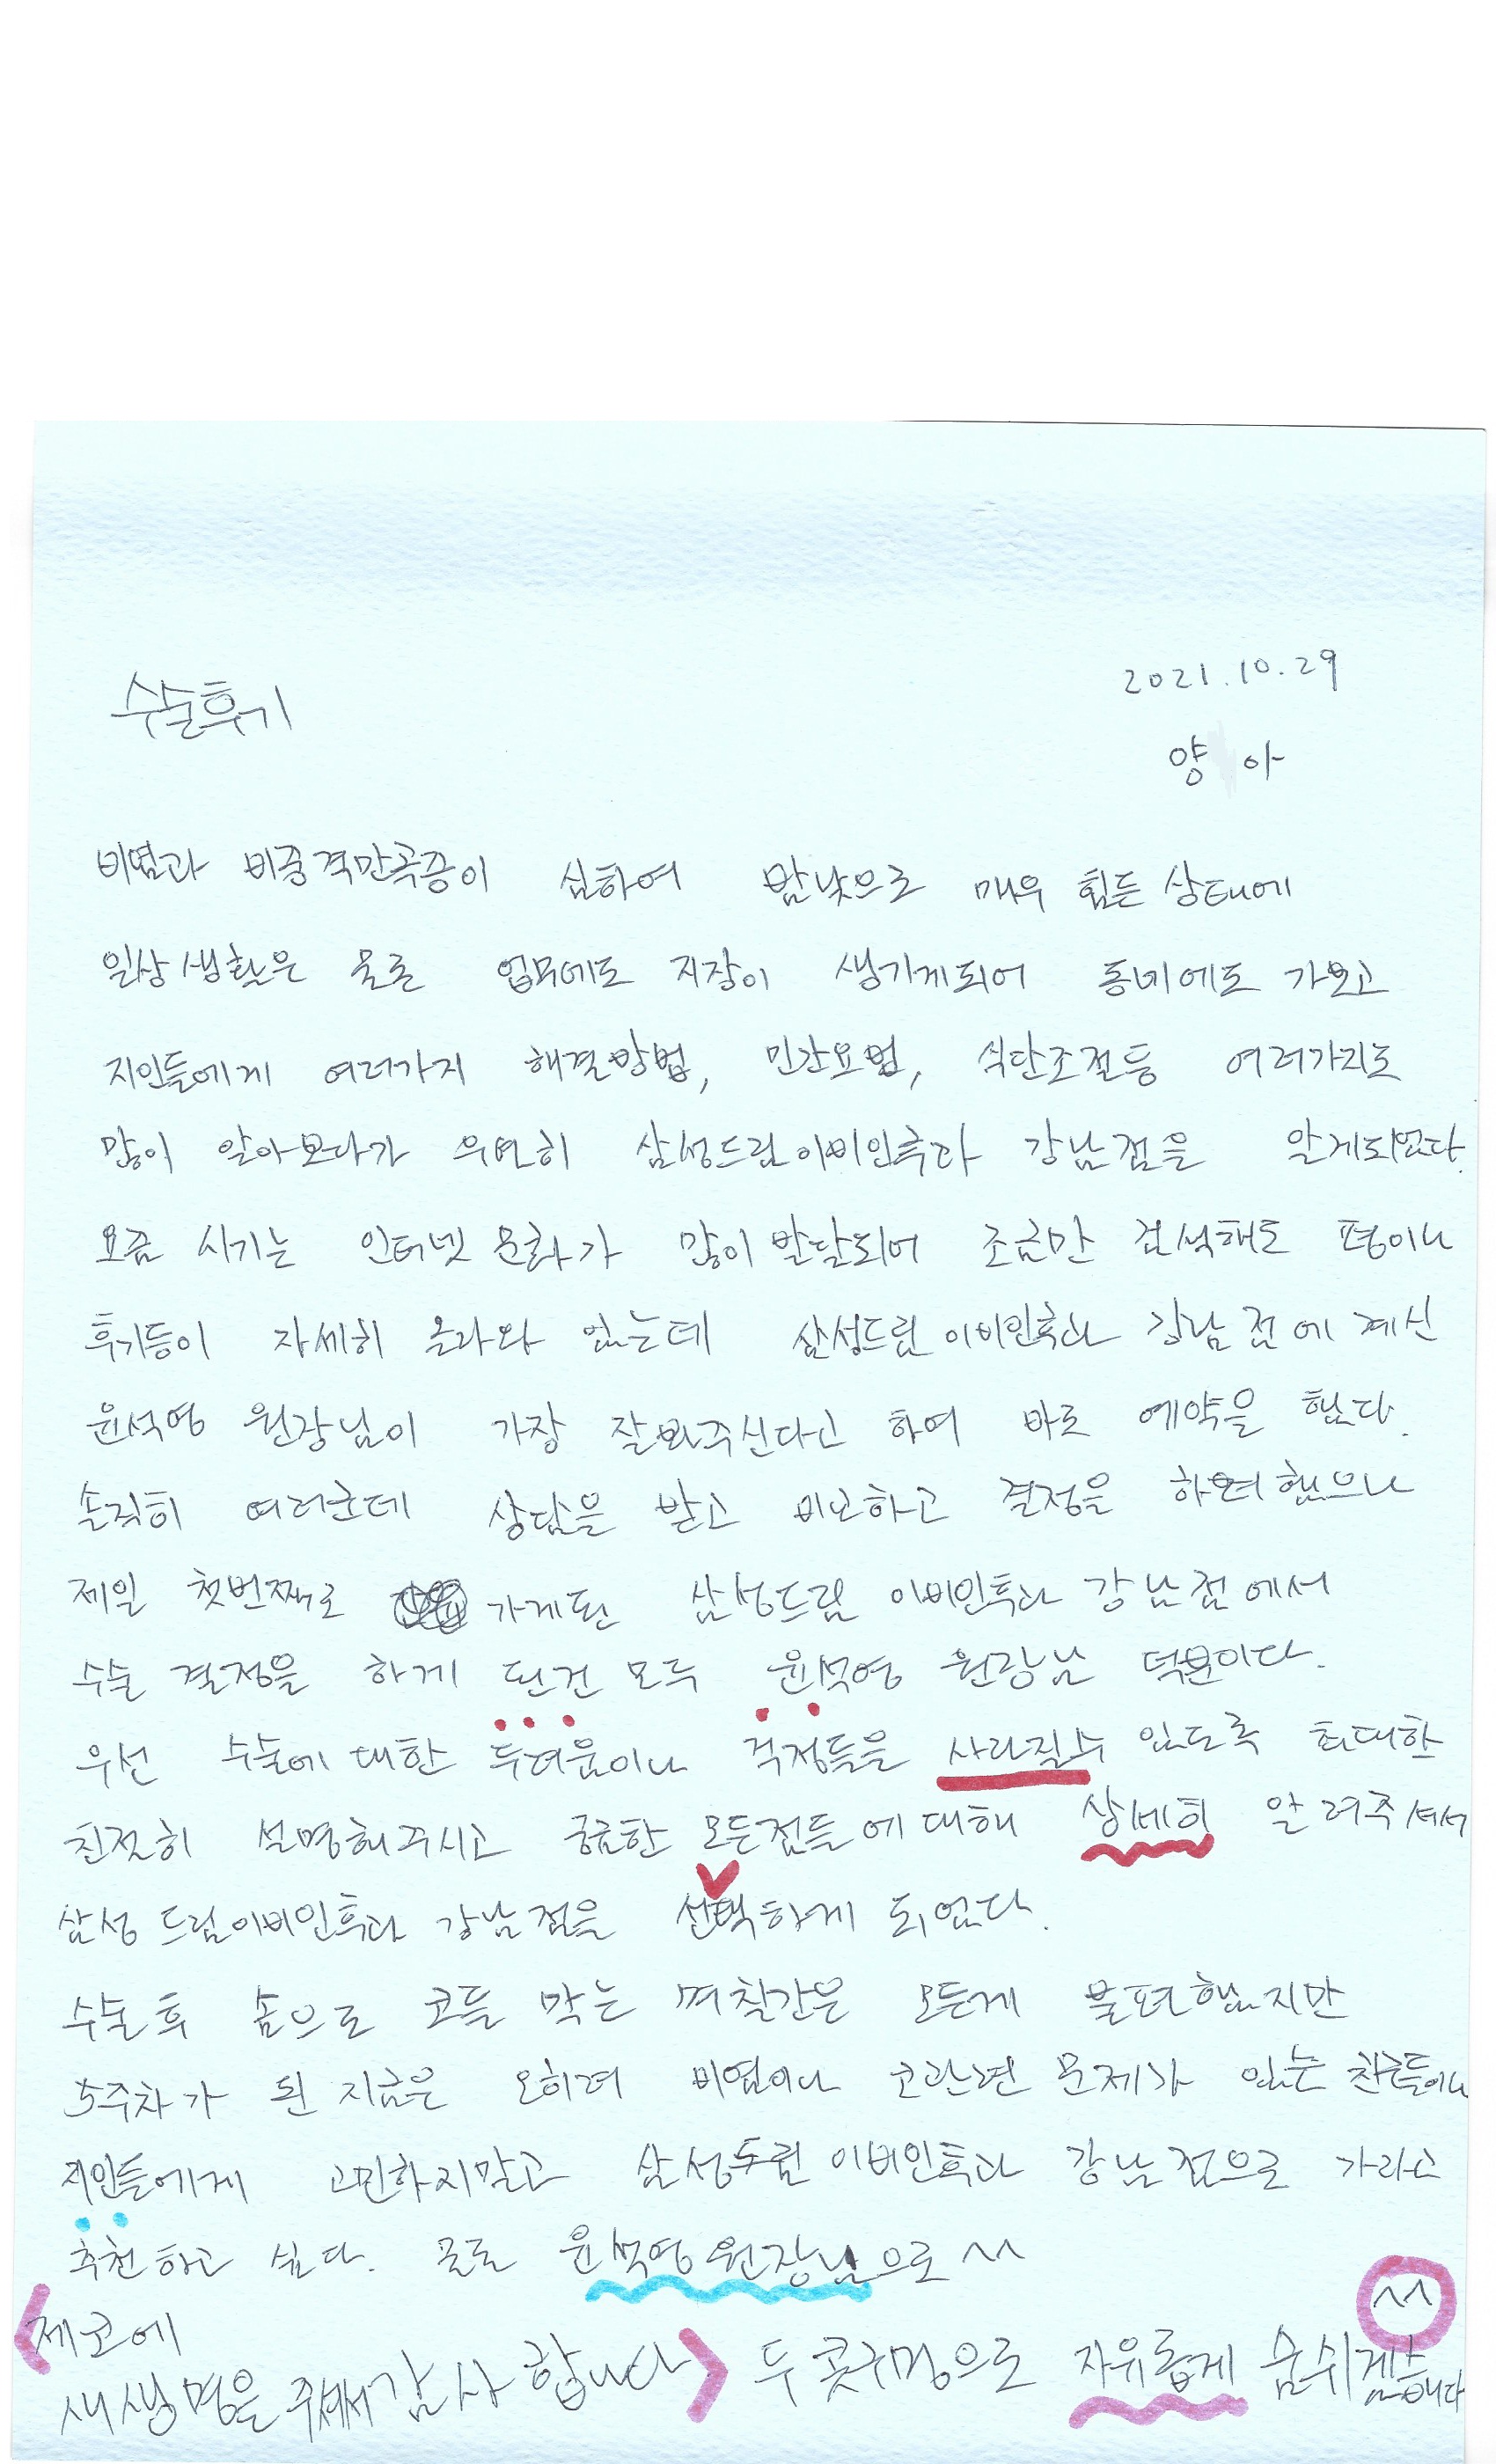 수술후기
2021.10.29
양 아
비염과 비중격만곡증이 심하여 밤낮으로 매우 힘든 상태에
일상생활은 물론 업무에도 지장이 생기게되어 동네에도 가보고
지인들에게 여러가지 해결방법, 민간요법, 식단조절등 여러가지로
많이 알아보다가 우연히 삼성드림이비인후과 강남점을 알게되었다.
요즘 시기는 인터넷 문화가 많이 발달되어 조금만 검색해도 평이나
후기등이 자세히 올라와 있는데 삼성드림이비인후과 강남점에 계신
윤석영 원장님이 가장 잘봐주신다고 하여 바로 예약을 했다.
솔직히 여러군데 상담을 받고 비교하고 결정을 하려했으나
제일 첫번째로 가게된 삼성드림 이비인후과 강남점에서
수술 결정을 하게 된건 모두 윤석영 원장님 덕분이다.
우선 수술에 대한 두려움이나 걱정들을 사라질수 있도록 최대한
친절히 설명해주시고 궁금한 모든점들에 대해 상세히 알려주셔서
삼성드림이비인후과 강남점을 선택하게 되었다.
수술후 솜으로 코를 막는 며칠간은 모든게 불편했지만
5주차가 된 지금은 오히려 비염이나 코관련 문제가 있는 친구들이나
지인들에게 고민하지말고 삼성드림이비인후과 강남점으로 가라고
추천하고 싶다. 꼭 윤석영원장님으로 ^^
<제코에
새생명을 주셔서 감사합니다> 두 콧구멍으로 자유롭게 숨쉬겠습니다 ^^